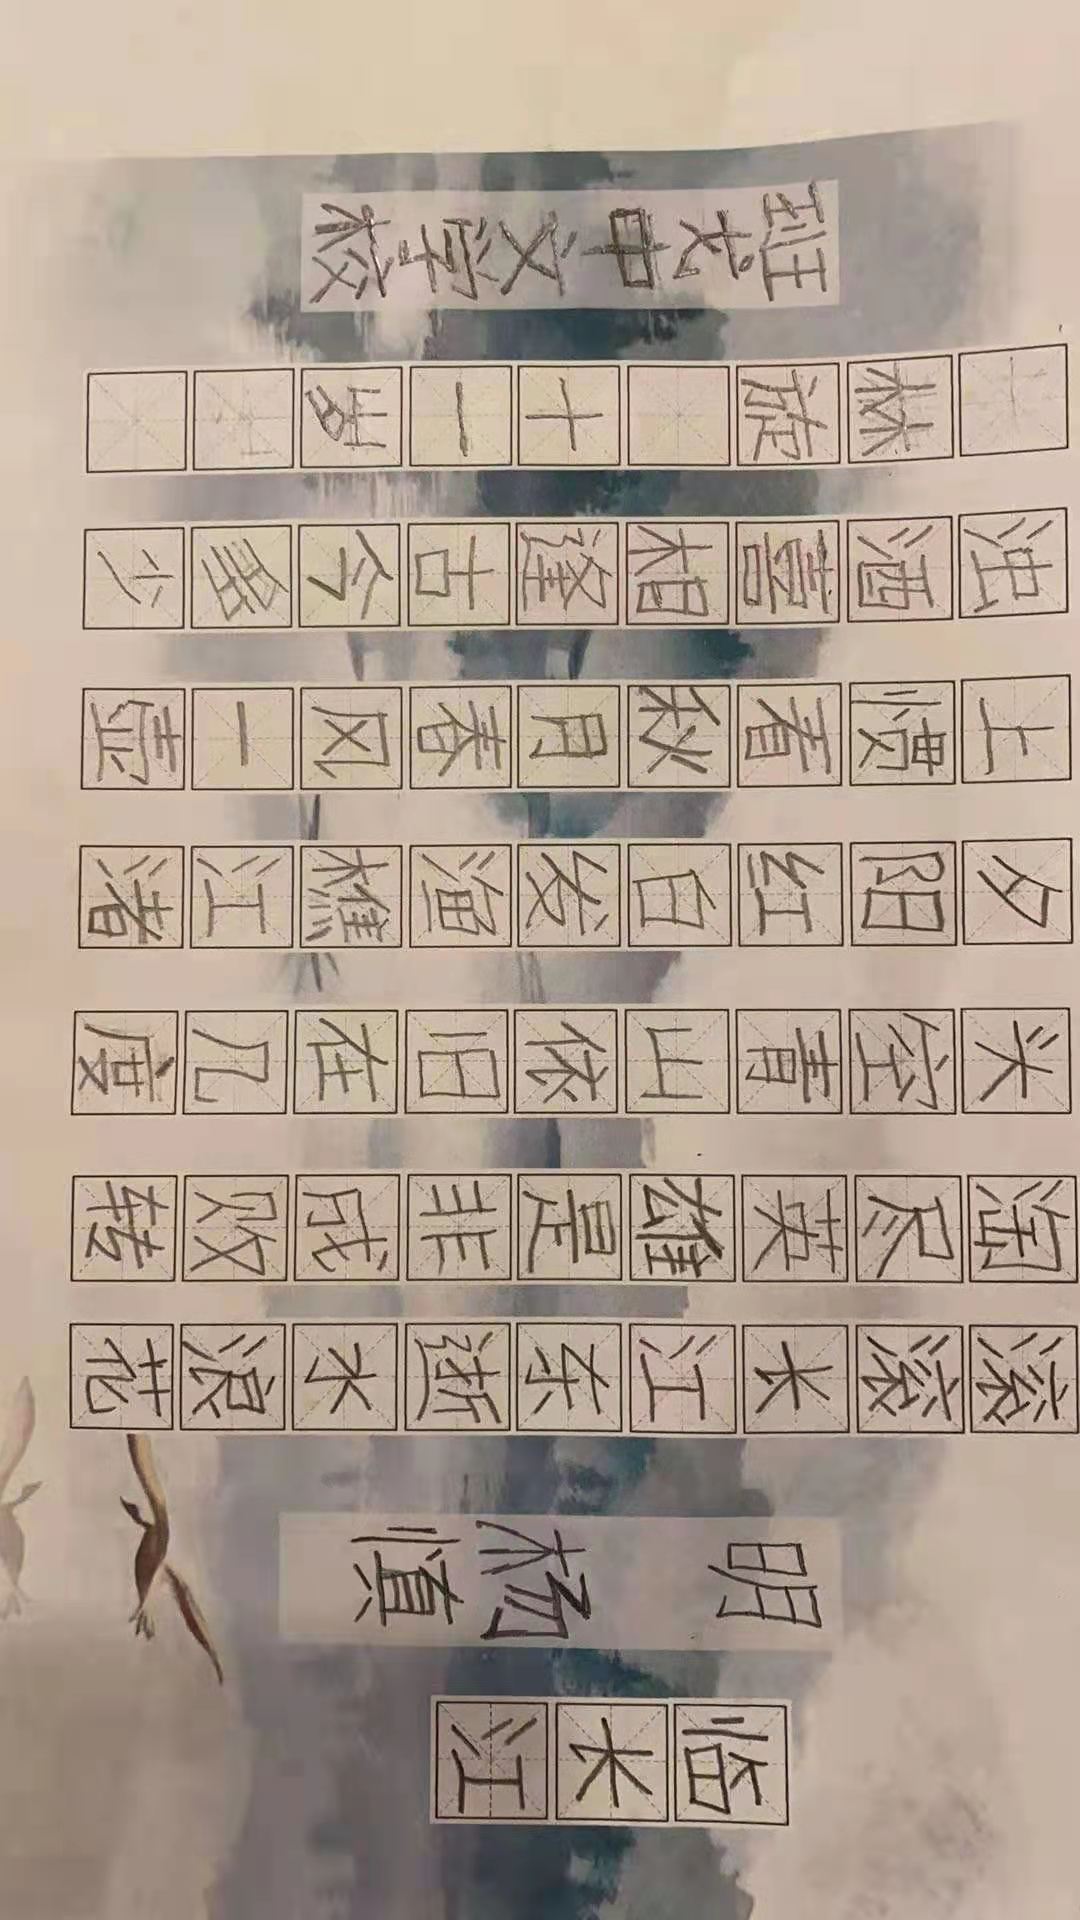 临长江
明 杨慎
滚滚长江东逝水浪花
淘尽英雄是非成败转
头空青山依旧在几度
夕阳红白发渔樵江渚
上惯看秋月春风一壶
浊酒喜相逢古今多少
林旋 十一岁
班戈中文学校